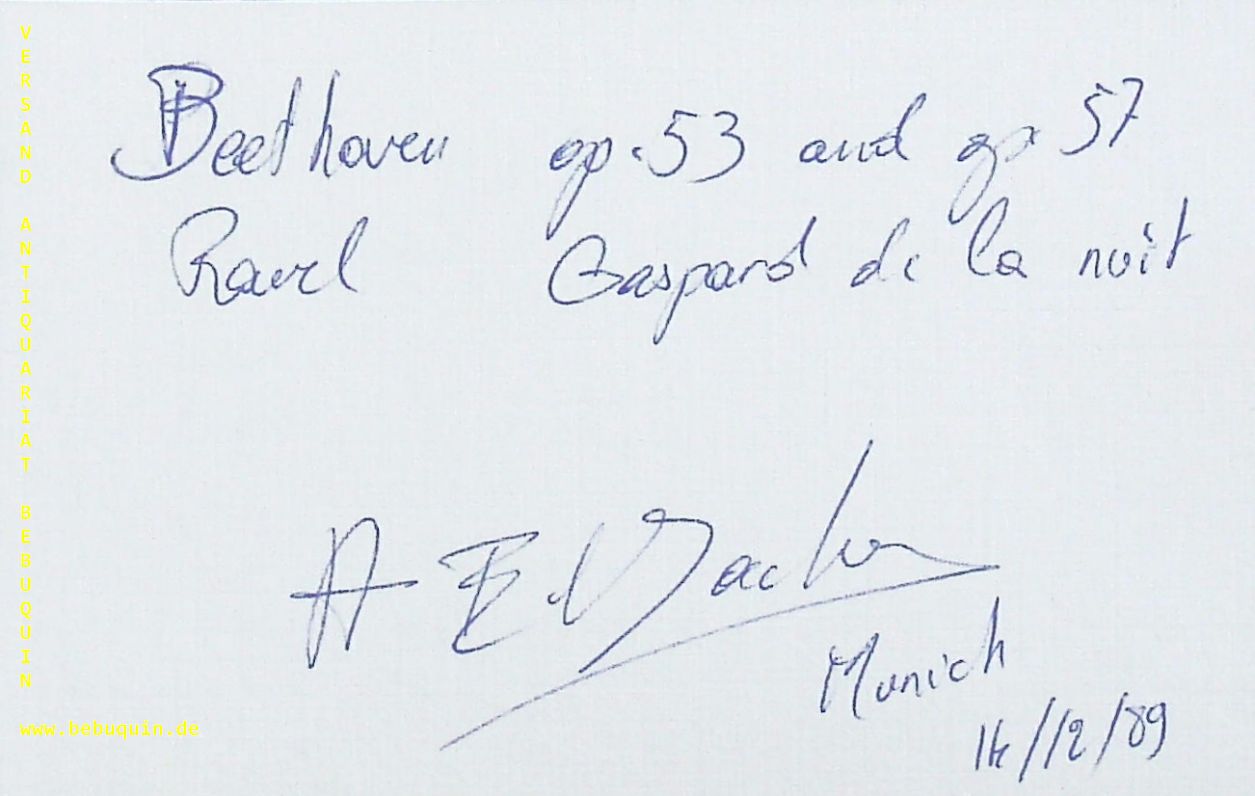 Beethoven op. 53 and op. 57
Ravel Gaspard de la nuit
A El Bacha
Munich
14/12/89
VERSAND ANTIQUARIAT BEBUQUIN
www.bebuquin.de